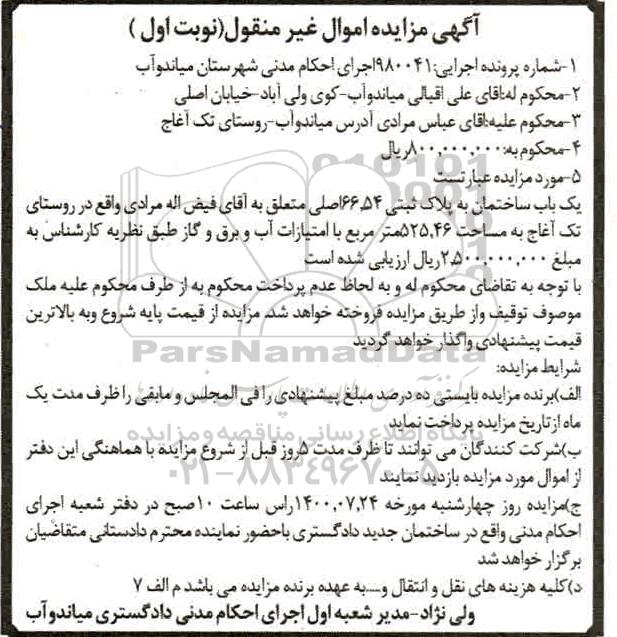 آگهی مزایده اموال غیر منقول(نوبت اول )
۱-شماره پرونده اجرایی:۹۸۰۰۴۱اجرای احکام مدنی شهرستان میاندوآب
۲-محکوم له:اقای علی اقبالی میاندوآب-کوی ولی آباد-خیابان اصلی
۳-محکوم علیه:اقای عباس مرادی آدرس میاندوآب-روستای تک آغاج
۴-محکوم به:۸۰۰,۰۰۰,۰۰۰ریال
۵-مورد مزایده عبارتست
یک باب ساختمان به پلاک ثبتی ۶۶,۵۴اصلی متعلق به آقای فیض اله مرادی واقع در روستای
تک آغاج به مساحت ۵۲۵,۴۶متر مربع با امتیازات آب و برق و گاز طبق نظریه کارشناس به
مبلغ ۲,۵۰۰,۰۰۰,۰۰۰ریال ارزیابی شده است
با توجه به تقاضای محکوم له و به لحاظ عدم پرداخت محکوم به از طرف محکوم علیه ملک
موصوف توقیف واز طریق مزایده فروخته خواهد شد. مزایده از قیمت پایه شروع وبه بالاترین
قیمت پیشنهادی واگذار خواهد گردید
ParsNamadData
شرایط مزایده:
الف)برنده مزایده بایستی ده درصد مبلغ پیشنهادی را فی المجلس و مابقی را ظرف مدت یک
ماه از تاریخ مزایده پرداخت نماید
پایگاه اطلاع رسانی مناقصه و مزایده
ب)شرکت کنندگان می توانند تا ظرف مدت ۵روز قبل از شروع مزایده با هماهنگی این دفتر
از اموال مورد مزایده بازدید نمایند
۰۲۱-۸۸۳۴۹۶۷۰-۵
ج)مزایده روز چهارشنبه مورخه ۱۴۰۰,۰۷,۲۴راس ساعت ۱۰صبح در دفتر شعبه اجرای
احکام مدنی واقع در ساختمان جدید دادگستری باحضور نماینده محترم دادستانی متقاضیان
برگزار خواهد شد
د)کلیه هزینه های نقل و انتقال و...به عهده برنده مزایده می باشد م الف ۷
ولی نژاد-مدیر شعبه اول اجرای احکام مدنی دادگستری میاندوآب